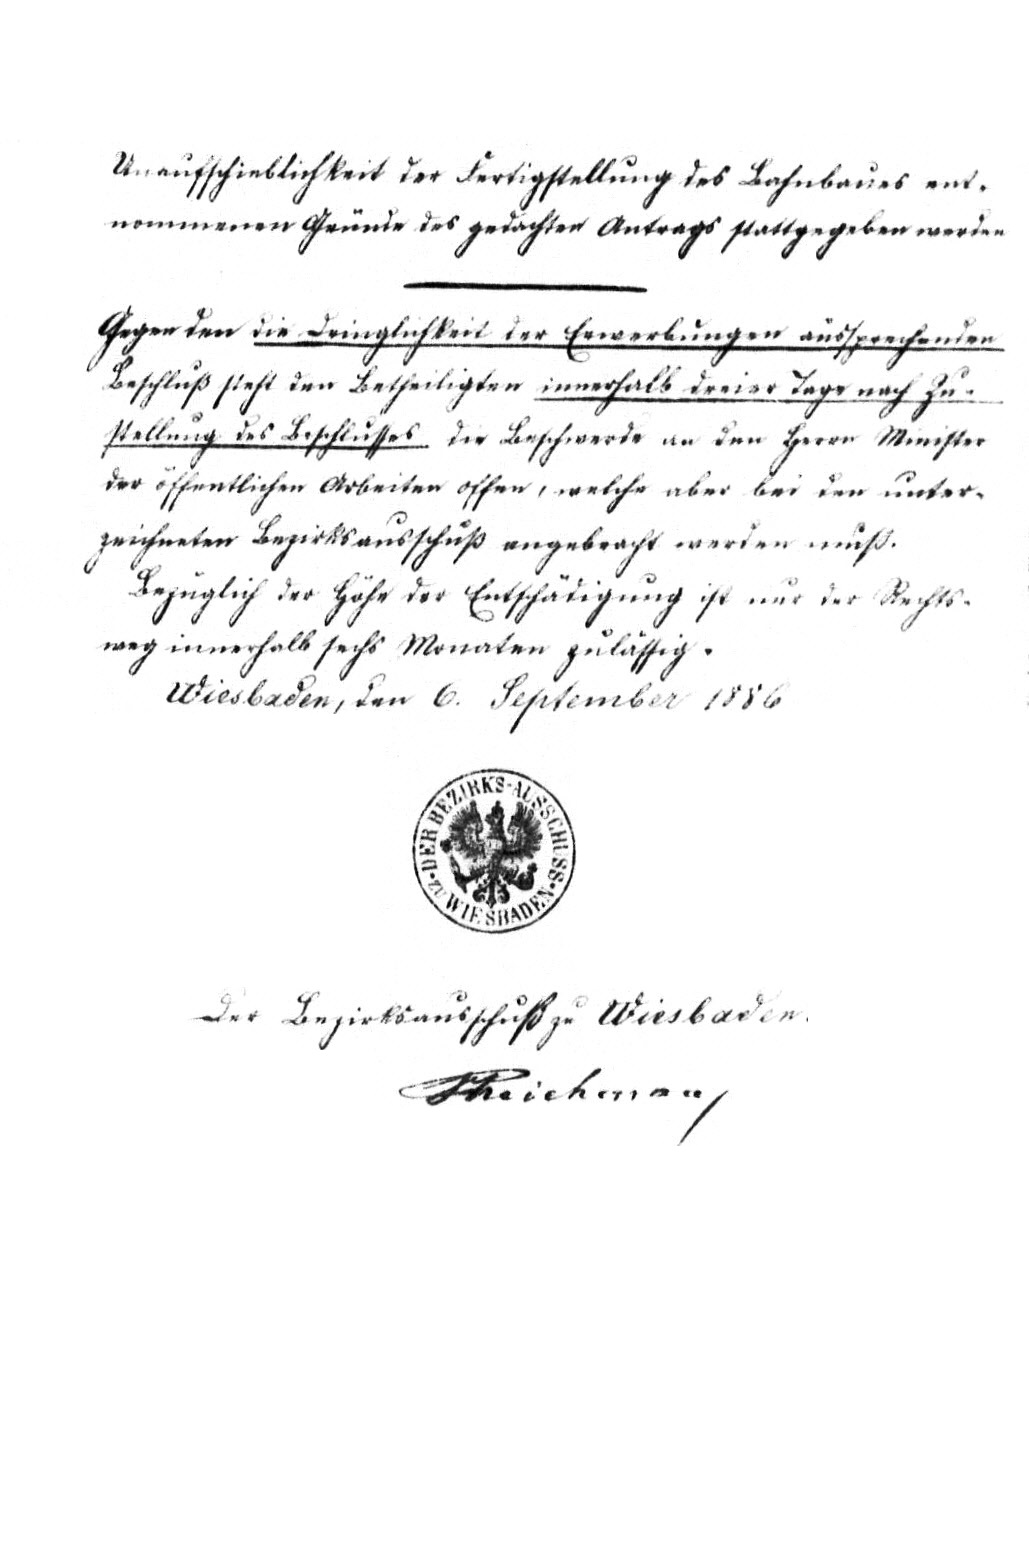 Unaufschieblichkeit der Fertigstellung des Bahnbaues ent-
nommenen Gründe des gedachten Antrags stattgegeben werden
Gegen den die Dringlichkeit der Erwerbungen aussprechenden
Beschluß steht den Betheiligten innerhalb dreier Tage nach Zu-
stellung des Beschlusses die Beschwerde an den Herrn Minister
der öffentlichen Arbeiten offen, welche aber bei den unter-
zeichneten Bezirksausschuß angebracht werden muß.
Bezüglich der Höhe der Entschädigung ist nur der Rechts-
weg innerhalb sechs Monaten zulässig.
Wiesbaden, den 6. September 1886
DER BEZIRKS-AUSSCHUSS
ZU WIESBADEN
Der Bezirksausschuß zu Wiesbaden.